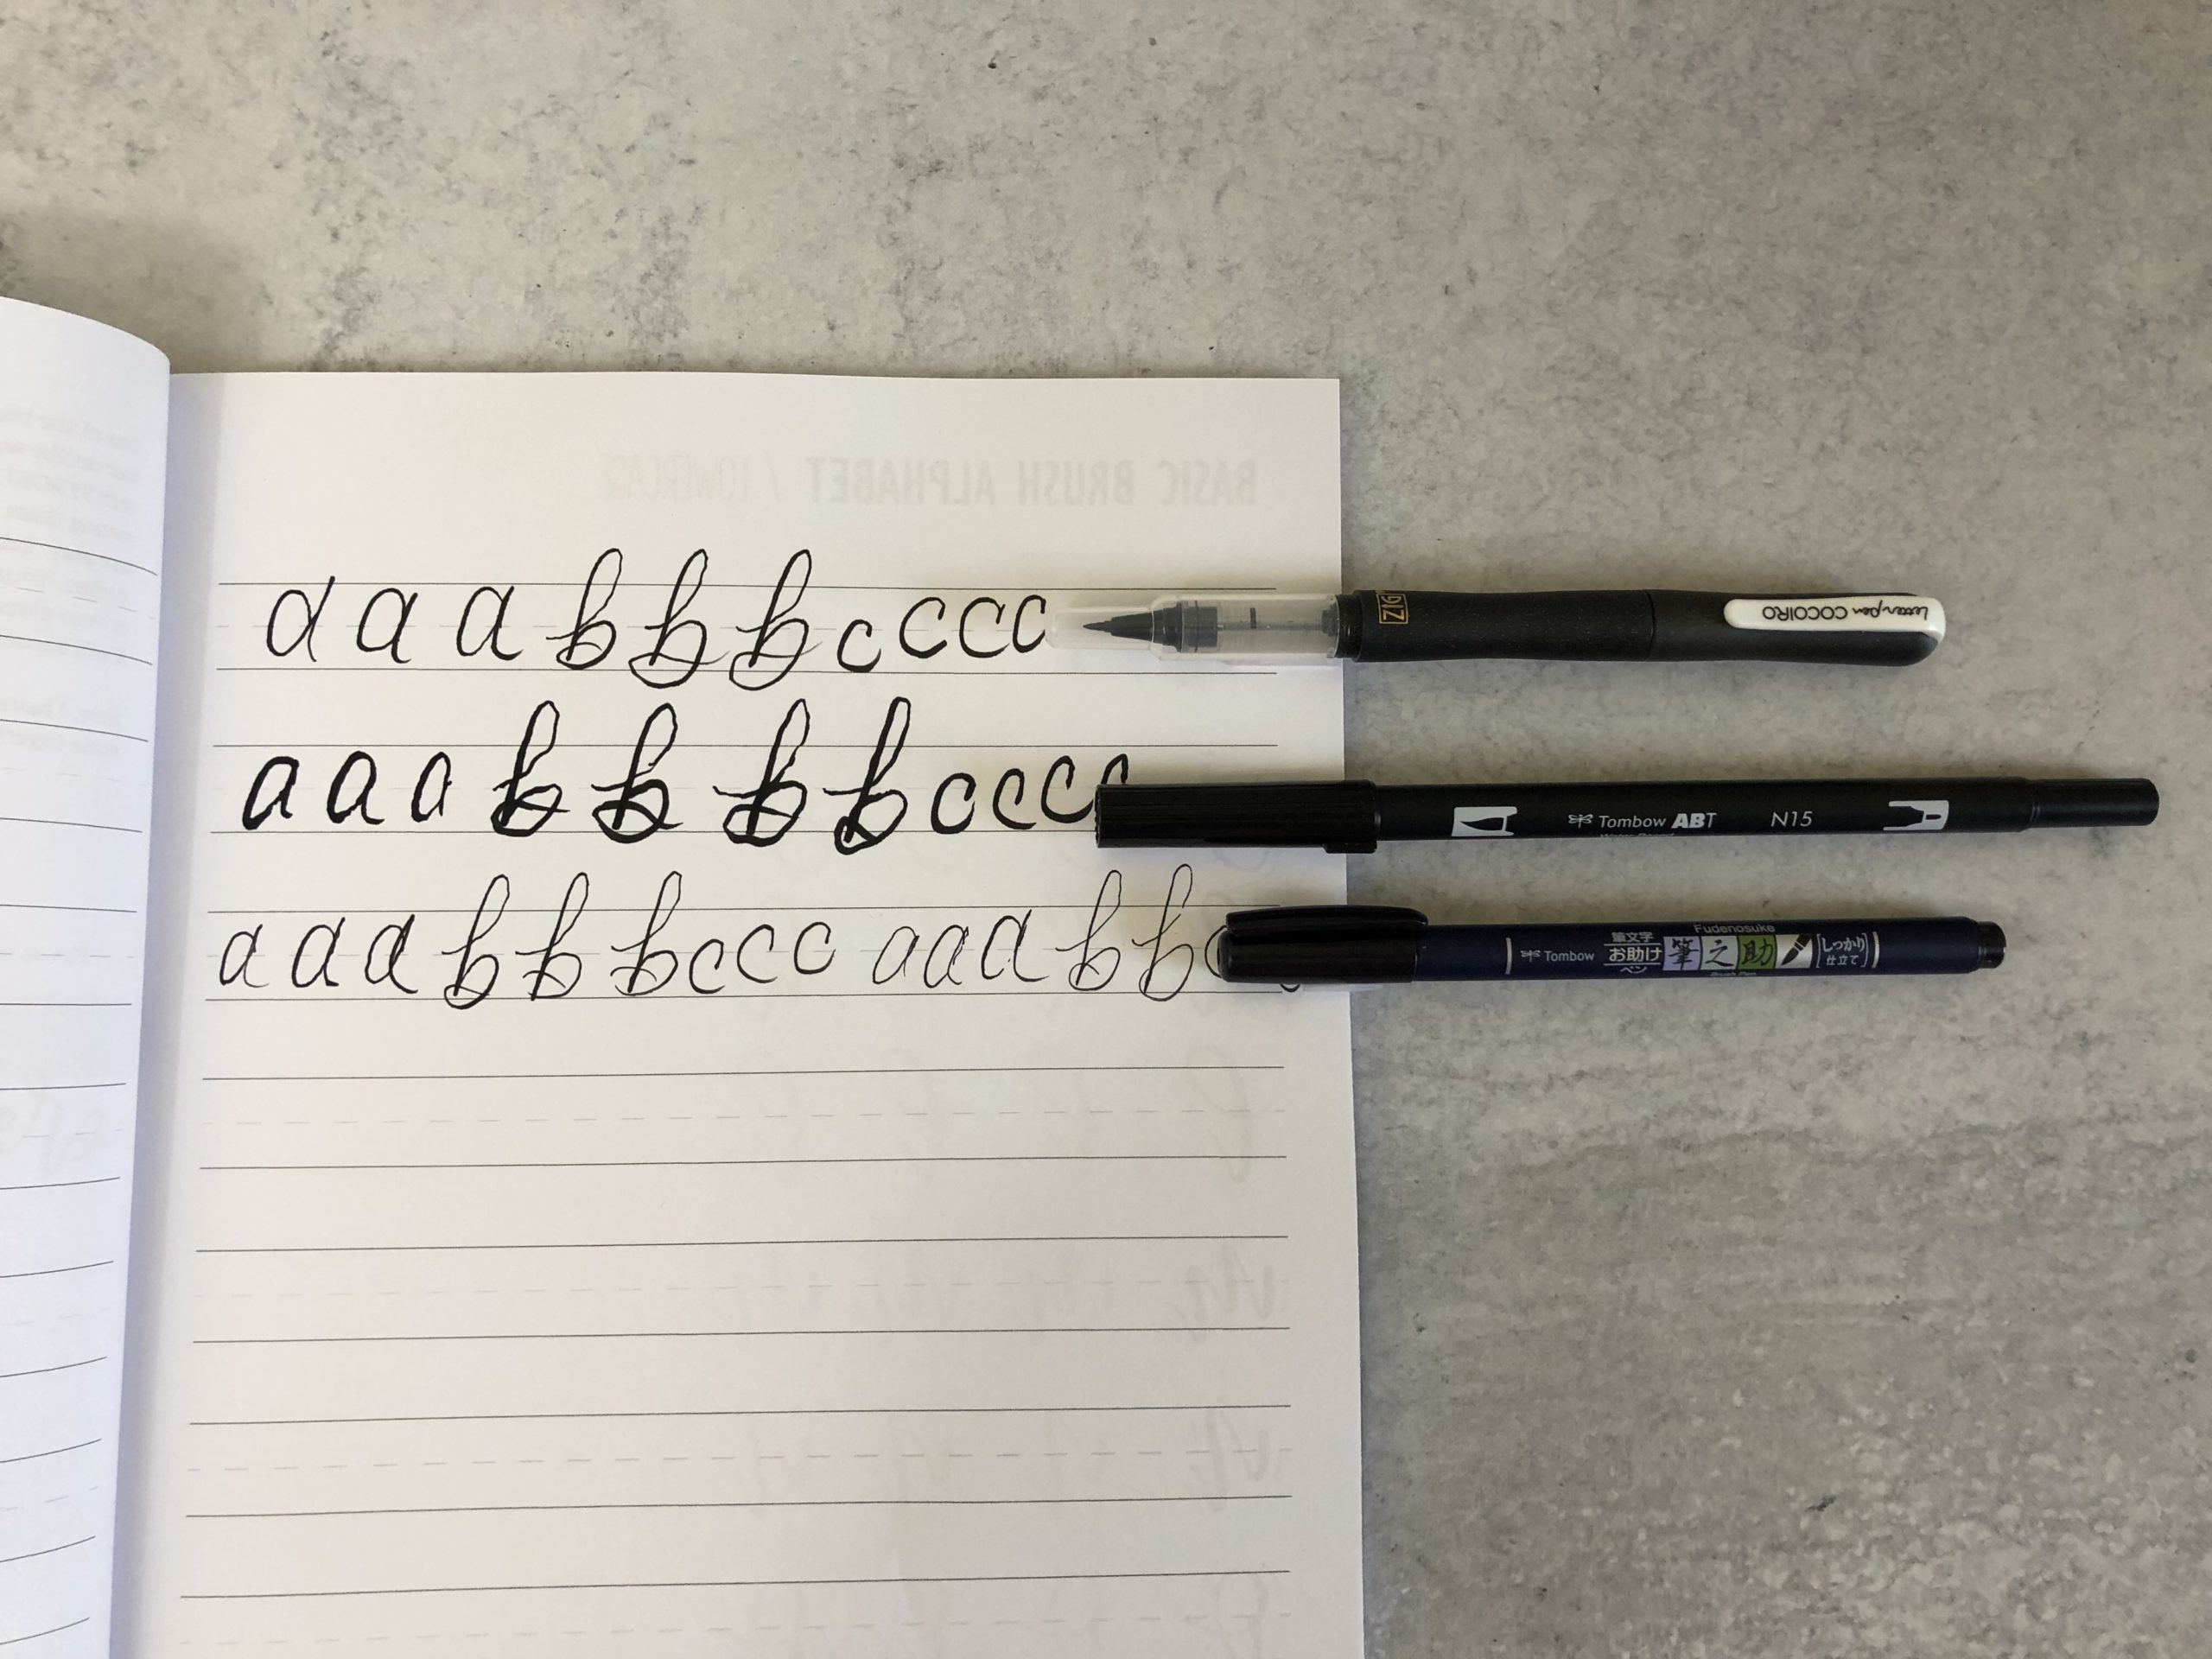 BASIC BRUSH ALPHABET / LOWERCASE
a a a b b b c c c c
ZIG
Letter pen COCOIRO
a a a b b b b c c c c
Tombow ABT N15
a a a b b b c c c a a a b b
Fudenosuke
Tombow 筆文字 お助け ペン 筆之助 しっかり 仕立て
Brush Pen